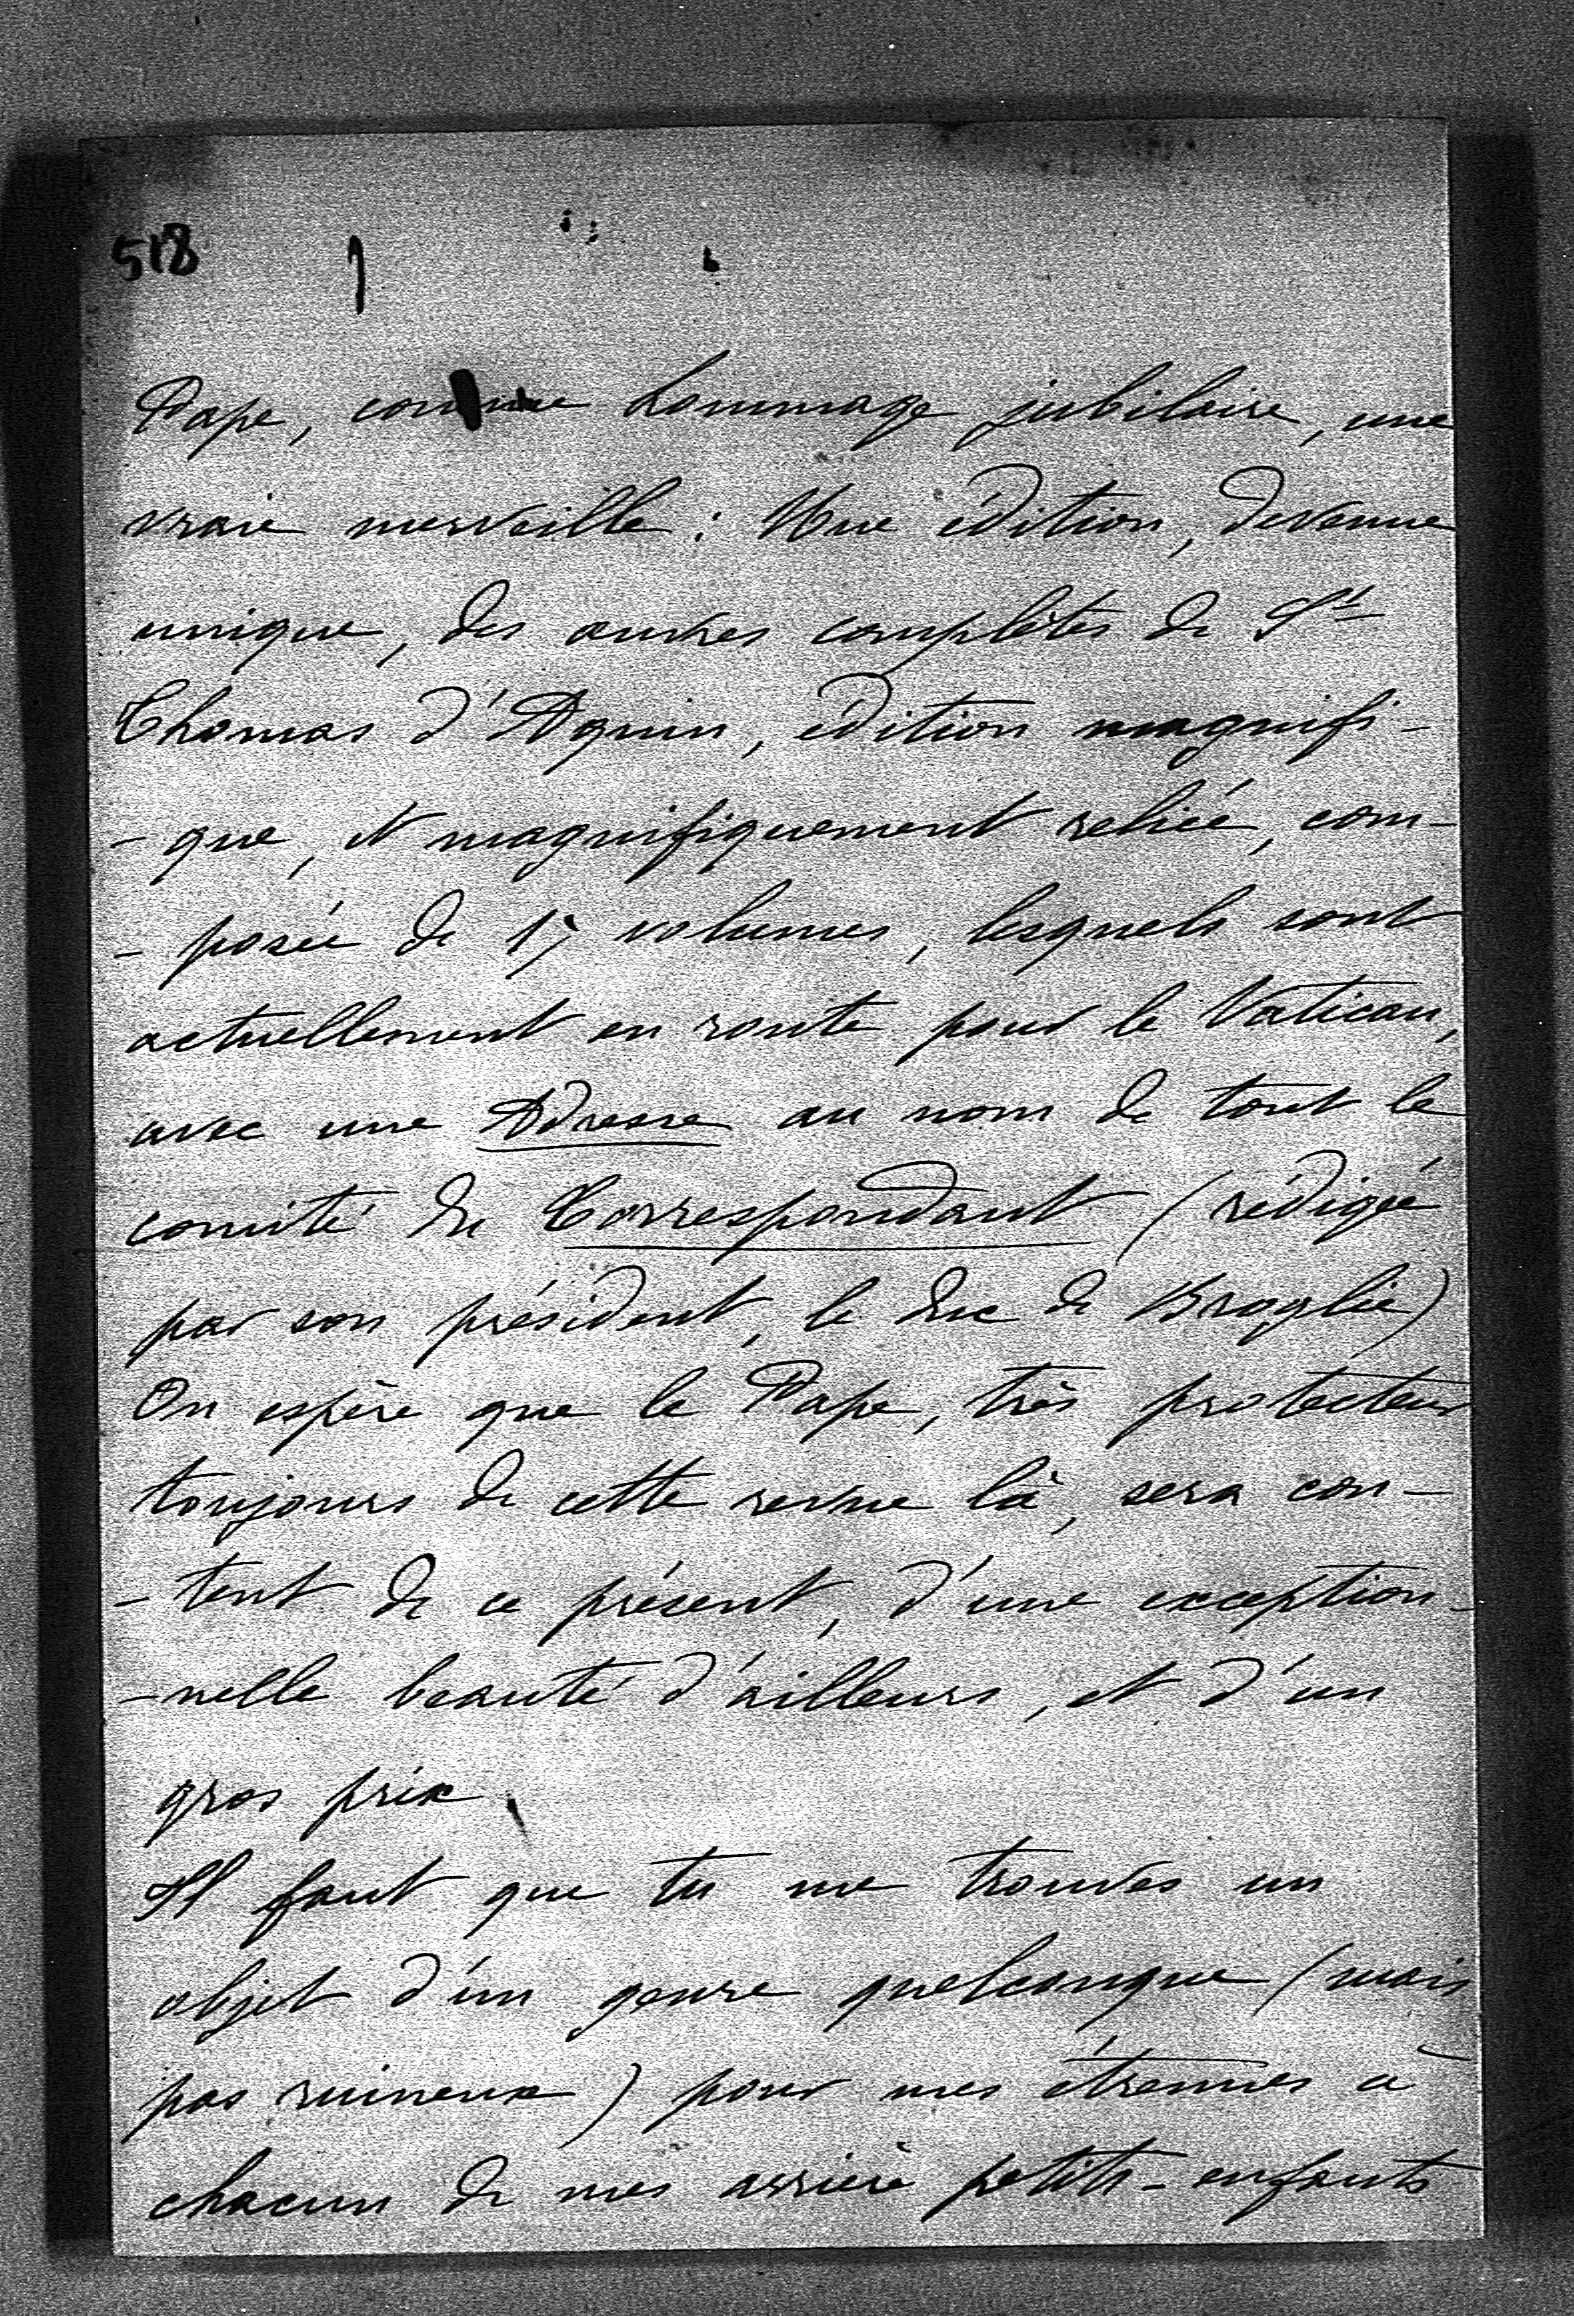 518
Pape, comme hommage jubilaire, une
vraie merveille : Une édition, devenue
unique, des œuvres complètes de St
Thomas d'Aquin, édition magnifi-
- que, et magnifiquement reliée, com-
- posée de 17 volumes, lesquels sont
actuellement en route pour le Vatican,
avec une Adresse au nom de tout le
comité du Correspondant (rédigée
par son président, le duc de Broglie)
On espère que le Pape, très protecteur
toujours de cette revue là, sera con-
- tent de ce présent, d'une exception-
- nelle beauté d'ailleurs, et d'un
gros prix.
Il faut que tu me trouves un
objet d'un genre quelconque (mais
pas ruineux) pour mes étrennes à
chacun de mes arrière petits-enfants